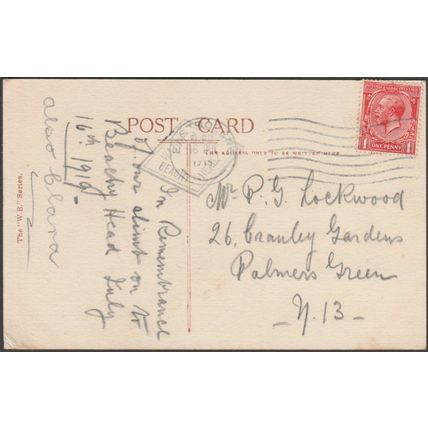 POST CARD
THE ADDRESS ONLY TO BE WRITTEN HERE
In Remembrance
of our climb on to
Beachy Head July
16th. 1919.
also Clara
Mr P. G. Lockwood
26, Cranley Gardens
Palmers Green
- N. 13 -
ONE PENNY
The "W.B." Series.